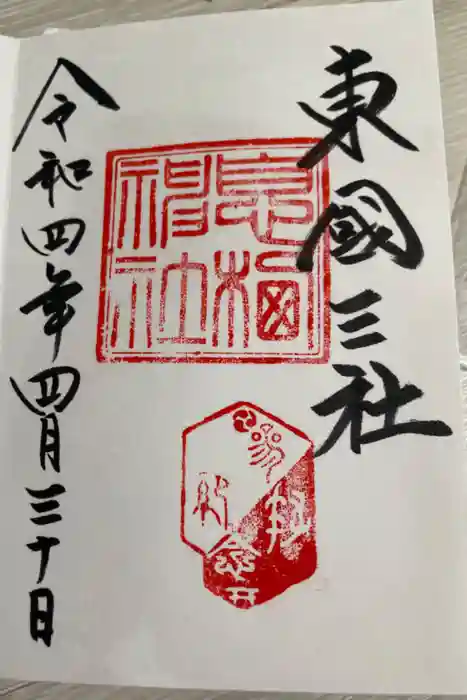 東國三社
息栖
神社
令和四年四月三十日